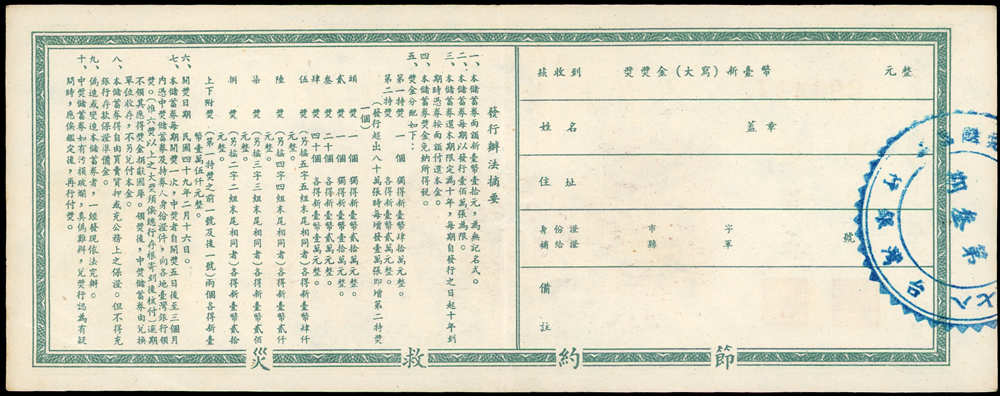 茲收到　獎獎金（大寫）新臺幣　元整
姓名　蓋章
住址
身份證　市　字
補給證　縣　軍　號
備註
發行辦法摘要
一、本儲蓄券面額新臺幣壹拾元，為無記名式。
二、本儲蓄券每期以發行壹佰萬張為限。
三、本儲蓄券還本期限定為十年，每期自發行之日起十年到
期時憑券按面額付還本金。
四、本儲蓄券獎金免納所得稅。
五、獎金分配如下：
第一特獎　一個　獨得新臺幣肆拾萬元整。
第二特獎
（發行超出八十萬張時每增發壹萬張即增第二特獎
一個）
頭獎　一個　獨得新臺幣
貳獎　一個　獨得新臺幣
叁獎　二十個　各得新臺幣貳萬元整。
肆獎　四十個　各得新臺幣壹萬元整。
伍獎（另搖五字五組末尾相同者）各得新臺幣肆仟
元整。
陸獎（另搖四字四組末尾相同者）各得新臺幣貳仟
元整。
柒獎（另搖三字三組末尾相同者）各得新臺幣
元整。
捌獎（另搖二字二組末尾相同者）各得新臺幣
元整。
上下附獎（第一特獎之前一號及後一號）兩個各得新臺
幣壹萬伍仟元整。
六、開獎日期　民國四十九年二月十六日。
七、本儲蓄券每期開獎一次，中獎者自開獎五日後至三個月
內憑中獎儲蓄券及持券人身份證件，向各地臺灣銀行領
獎。（惟六獎以上之大獎須俟總行存根寄到後核付）逾期
不領其應得獎金捐獻國庫。領獎後，中獎儲蓄券由兌換
單位收存，不另付本金。
八、本儲蓄券得自由買賣質押或充公務上之保證。但不得充
銀行存款保證準備金。
九、偽造或變造本儲蓄券者，一經發現依法究辦。
十、中獎儲蓄券如有污損破爛，真偽難辨，兌獎行認為有疑
問時，應俟鑑定後，再行付獎。
節約救災
台灣銀行
第叁期